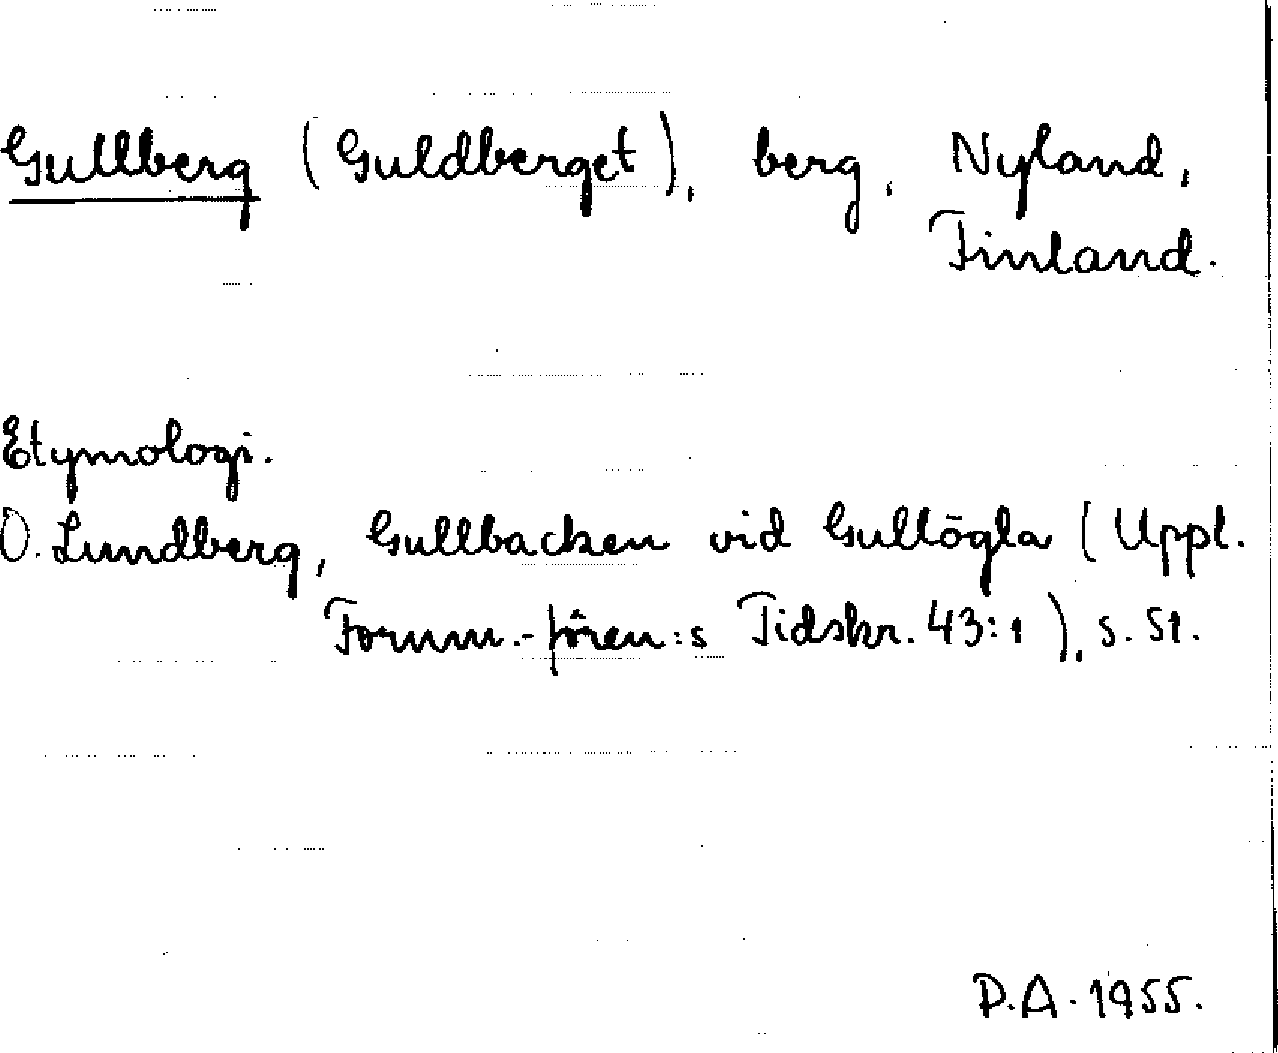 Gullberg (Guldberget), berg, Nyland,
Finland.
Etymologi.
O. Lundberg, Gullbacken vid Gullögla (Uppl.
Fornm.-fören:s Tidskr. 43:1), s. 51.
D.A. 1955.